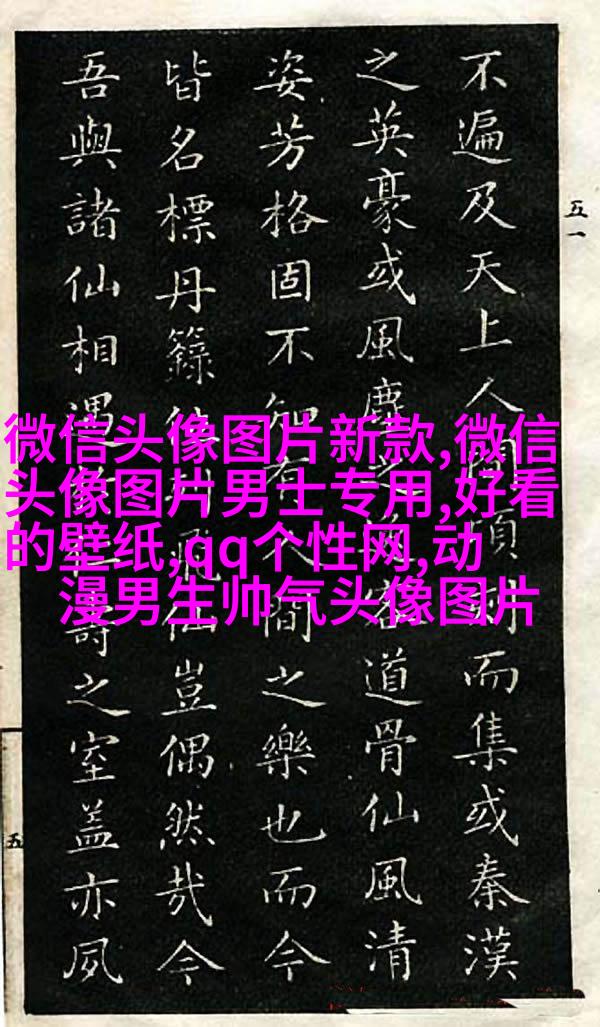 微信头像图片新款,微信
头像图片男士专用,好看
的壁纸,qq个性网,动
漫男生帅气头像图片
五一
不遍及天上人間頃而集或秦漢
之英豪或風塵之客道骨仙風清
姿芳格固不知有人間之樂也而今
皆名標丹籙飛仙豈偶然哉今
吾與諸仙相遇壽之室蓋亦夙
五